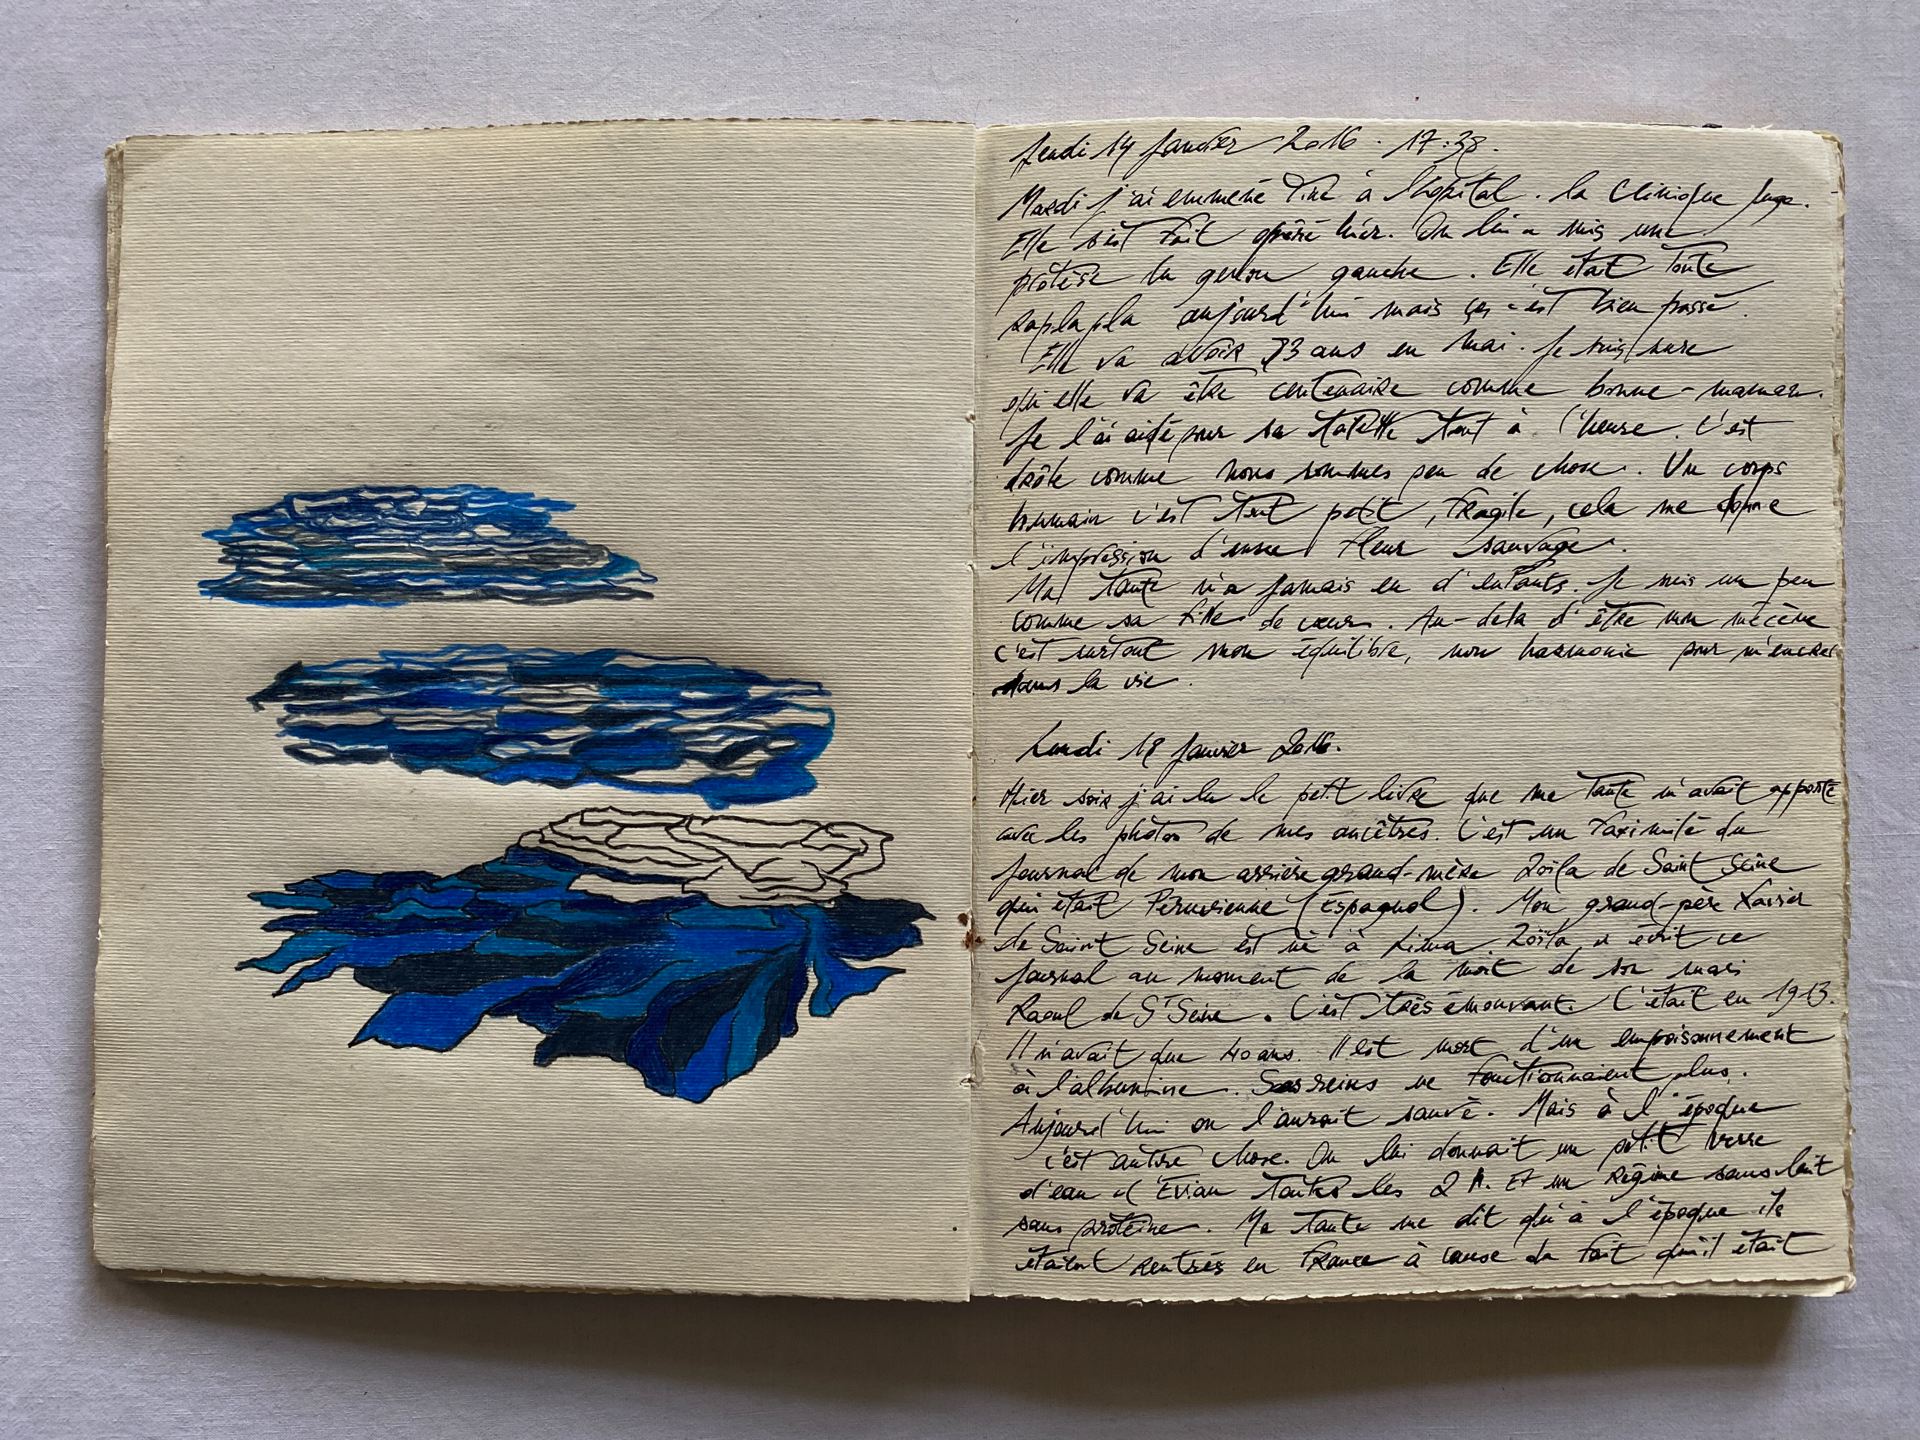 Jeudi 14 Janvier 2016 . 17:38.
Mardi j'ai emmené à l'hôpital . la Clinique Juge.
Elle s'est fait opéré hier. On lui a mis une
protèse du genou gauche . Elle était toute
raplapla aujourd'hui mais ça c'est bien passé.
Elle va avoir 73 ans en Mai. Je suis sure
qu'elle va être centenaire comme bonne-maman.
Je l'ai aidé pour sa toilette tout à l'heure. C'est
drôle comme nous sommes peu de chose . Un corps
humain c'est tout petit, fragile, cela me donne
l'impression d'une fleur sauvage .
Ma tante n'a jamais eu d'enfants. Je suis un peu
comme sa fille de cœur . Au-delà d'être mon mécène
c'est surtout mon équilibre, mon harmonie pour m'encrer
dans la vie .
Lundi 18 Janvier 2016.
Hier soir j'ai lu le petit livre que ma tante m'avait apporté
avec les photos de mes ancêtres. C'est un faximilé du
journal de mon arrière grand-mère Zoïla de Saint Seine
qui était Péruvienne (Espagnol) . Mon grand-père Xavier
de Saint Seine est né à Lima Zoïla a écrit ce
journal au moment de la mort de son mari
Raoul de St Seine . C'est très émouvant. C'était en 1913.
Il n'avait que 40 ans. Il est mort d'un empoisonnement
à l'albumine . Ses reins ne fonctionnaient plus.
Aujourd'hui on l'aurait sauvé. Mais à l'époque
c'est autre chose. On lui donnait un petit verre
d'eau d'Evian toutes les 2 h. Et un régime sans lait
sans protéine . Ma tante me dit qu'à l'époque ils
étaient rentrés en France à cause du fait qu'il était